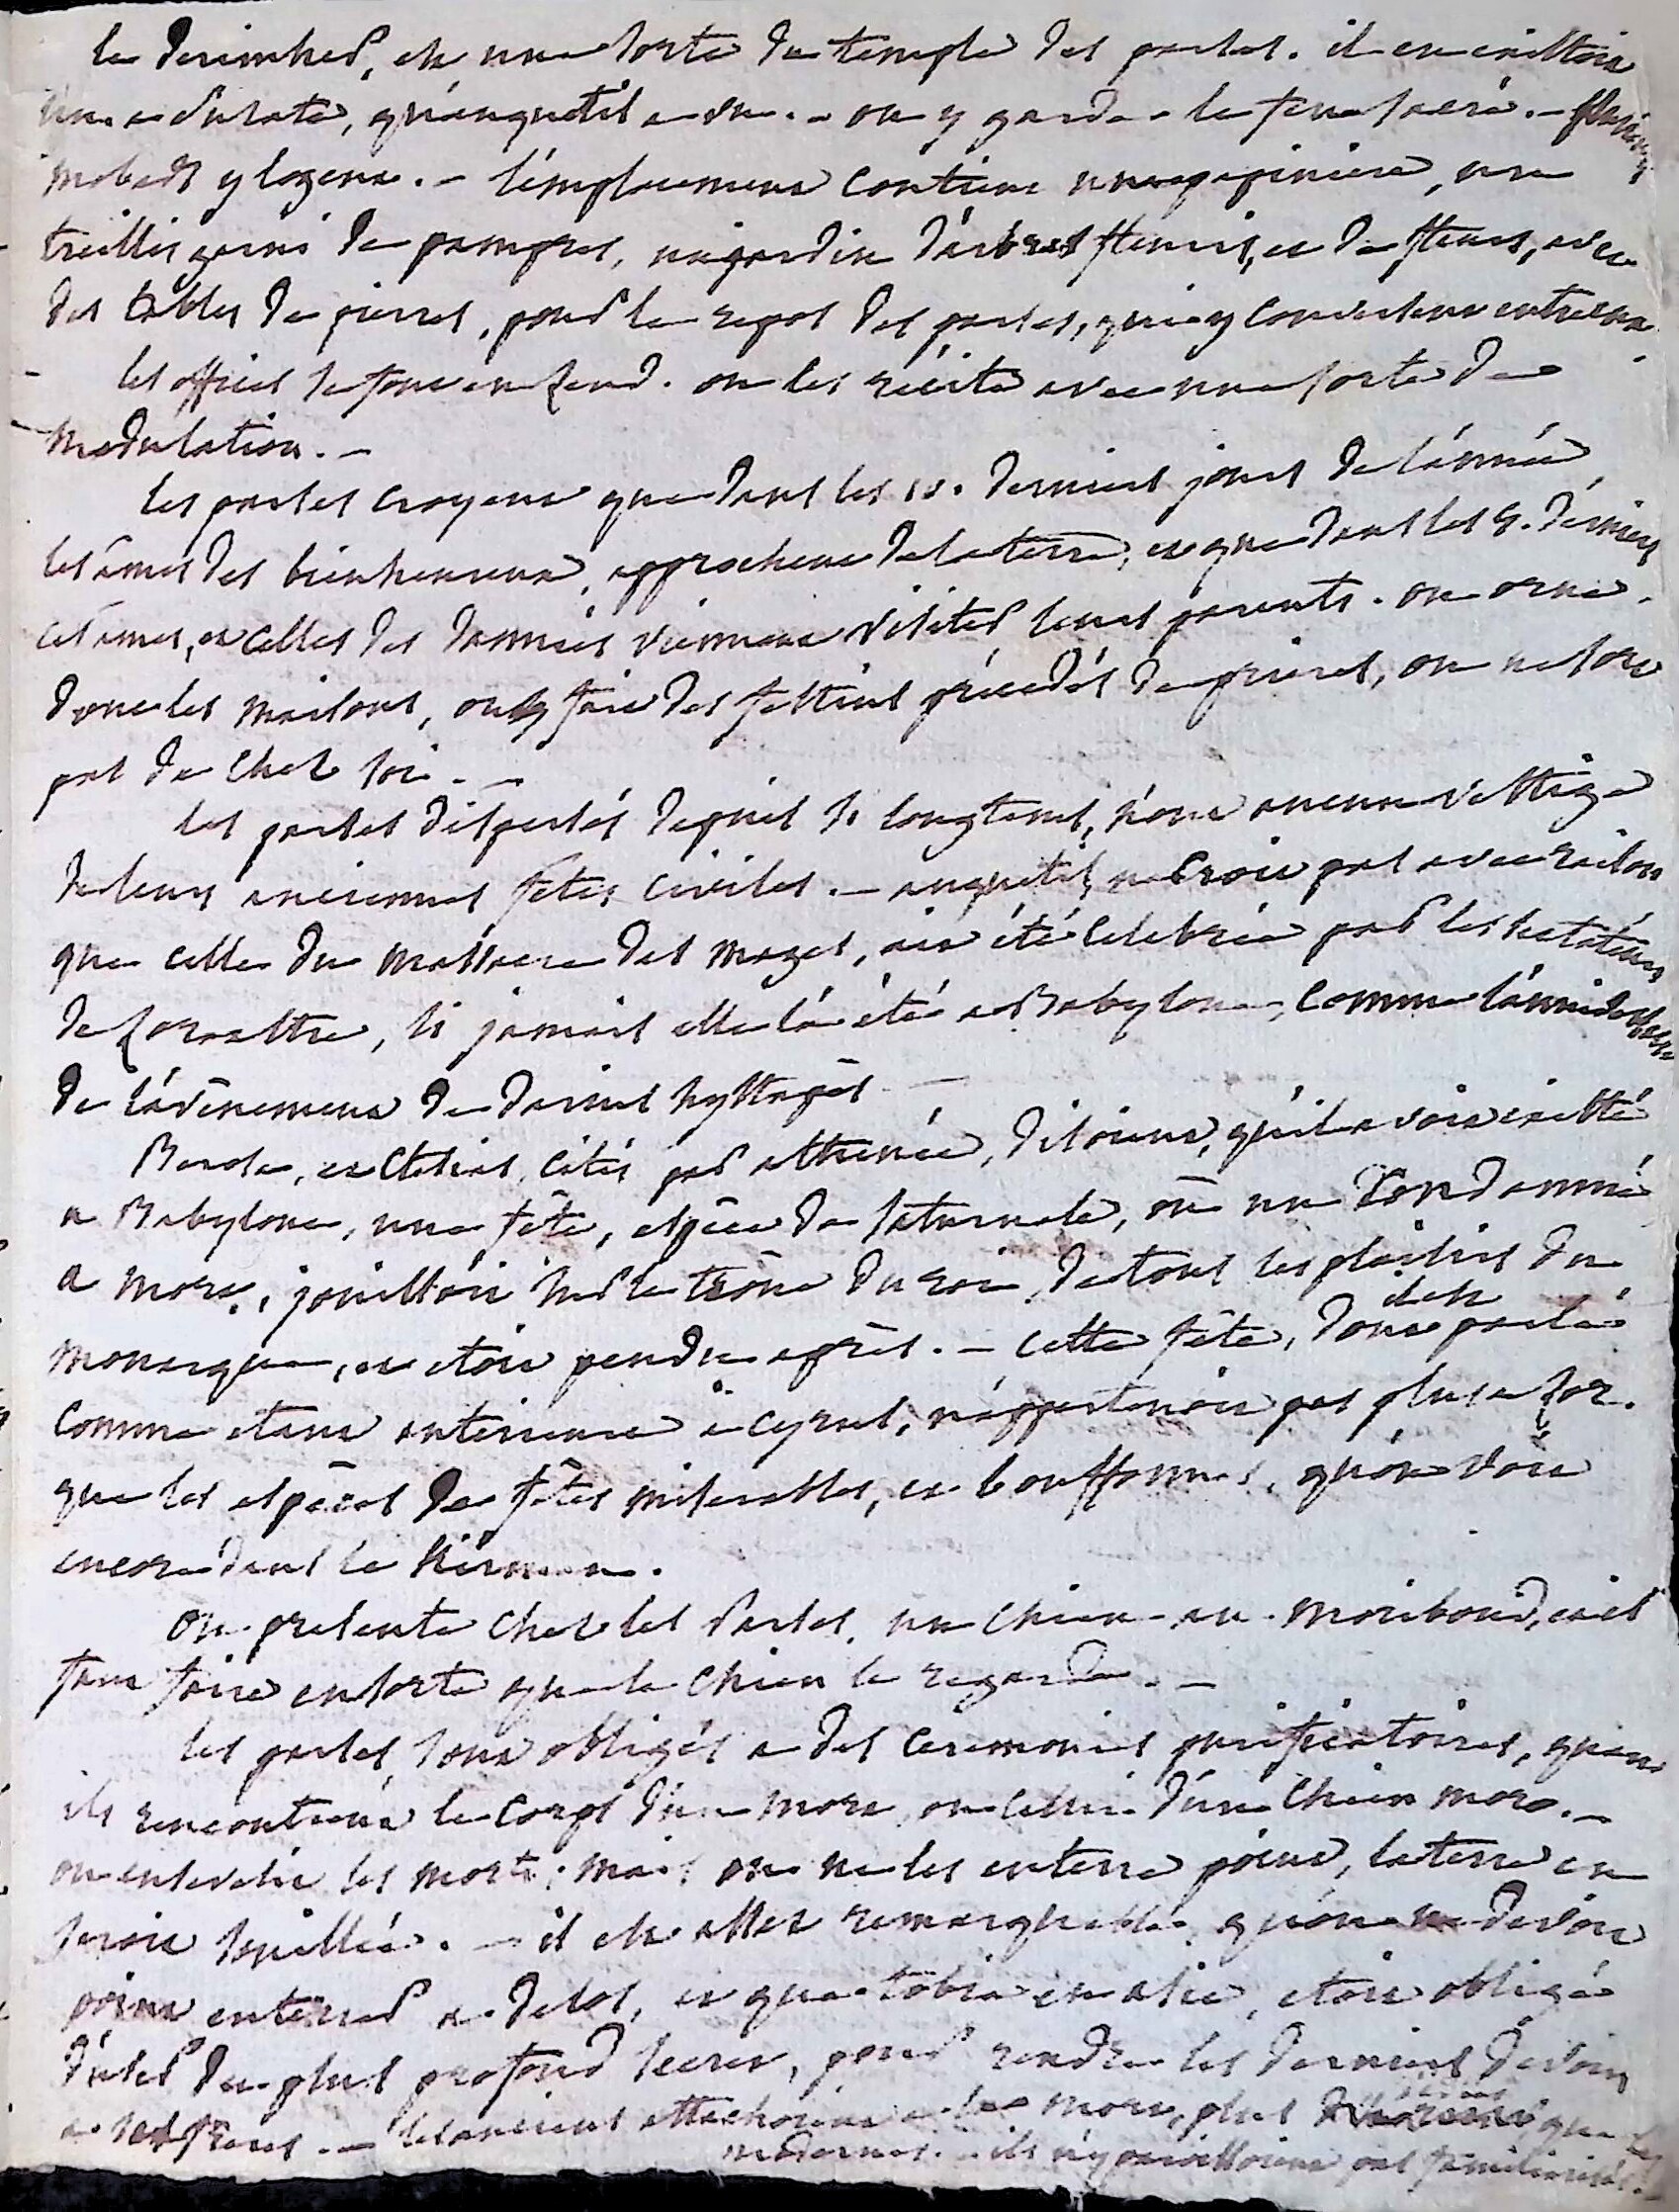 le derimher, est une sorte de temple des parses. il en existoit
un a surate, qu'anquetil a vu. - on y garde le feu sacré. - plusieurs
mobeds y logent. - l'emplacement contient une pepiniere, un
treillis garni de pampres, un jardin d'arbres fleuris, et de fleurs, avec
des tables de pierres, pour le repos des parses, qui y conversent entr'eux.
les offices se font en zend. on les récite avec une sorte de
modulation. -
les parses croyent que dans les 10. derniers jours de l'année
les âmes des bienheureux, approchent de la terre, et que dans les 5. derniers
ces âmes, et celles des damnés viennent visiter leurs parents. on orne
donc les maisons, on y fait des festins précédés de prieres, on ne sort
pas de chez soi. -
les parses dispersés depuis si longtems, n'ont aucun vestige
de leurs anciennes fetes civiles. - anquetil, ne croit pas avec raison
que celle du massacre des mages, ait été celebrée par les sectateurs
de zoroastre, si jamais elle l'a été a Babylone, comme
de l'avènement de darius hystaspès -
Berose, et ctesias, cités par athenée, disoient, qu'il avoit existé
a Babylone, une fête, espèce de saturnale, où un condamné
a mort, jouissoit sur le trône du roi, de tous les plaisirs du
monarque, et etoit pendu après. - cette fête, dont il est parlé
comme etant anterieure à cyrus, n'appartenoit pas plus a zor.
que les espèces de fêtes miserables, et bouffonnes, qu'on voit
encore dans le Kirman.
On presente chez les Parses, un chien au moribond, et il
faut faire ensorte que le chien le regarde. -
les parses, sont obligés a des ceremonies purificatoires, quand
ils rencontrent le corps d'un mort, ou celui d'un chien mort. -
on ensevelit les morts; mais on ne les enterre point, la terre en
seroit souillée. - il est assez remarquable, qu'on ne devoit
point enterrer a Delos, et que tobie en asie, etoit obligé
d'user du plus profond secret, pour rendre les derniers devoirs
a ses freres. - les anciens attachoient a la mort, plus que les
modernes. - ils n'y paroissoient pas familiarisés.